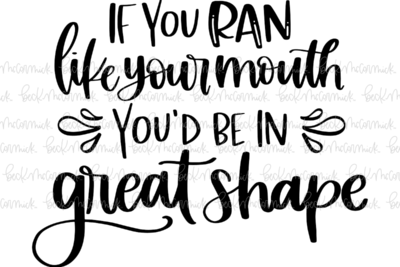 IF YOU RAN
like your mouth
YOU'D BE IN
great shape